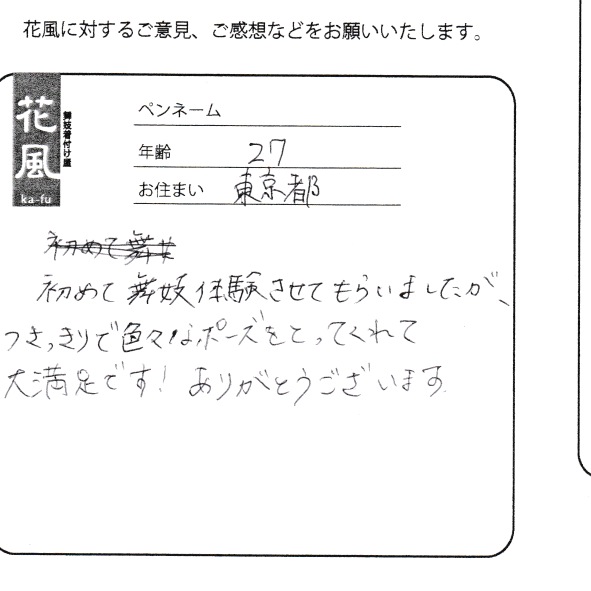 花風に対するご意見、ご感想などをお願いいたします。
花風
舞妓着付け屋
ka-fu
ペンネーム
年齢 27
お住まい 東京都
初めて舞
初めて舞妓体験させてもらいましたが、
つきっきりで色々なポーズをとってくれて
大満足です！ありがとうございます